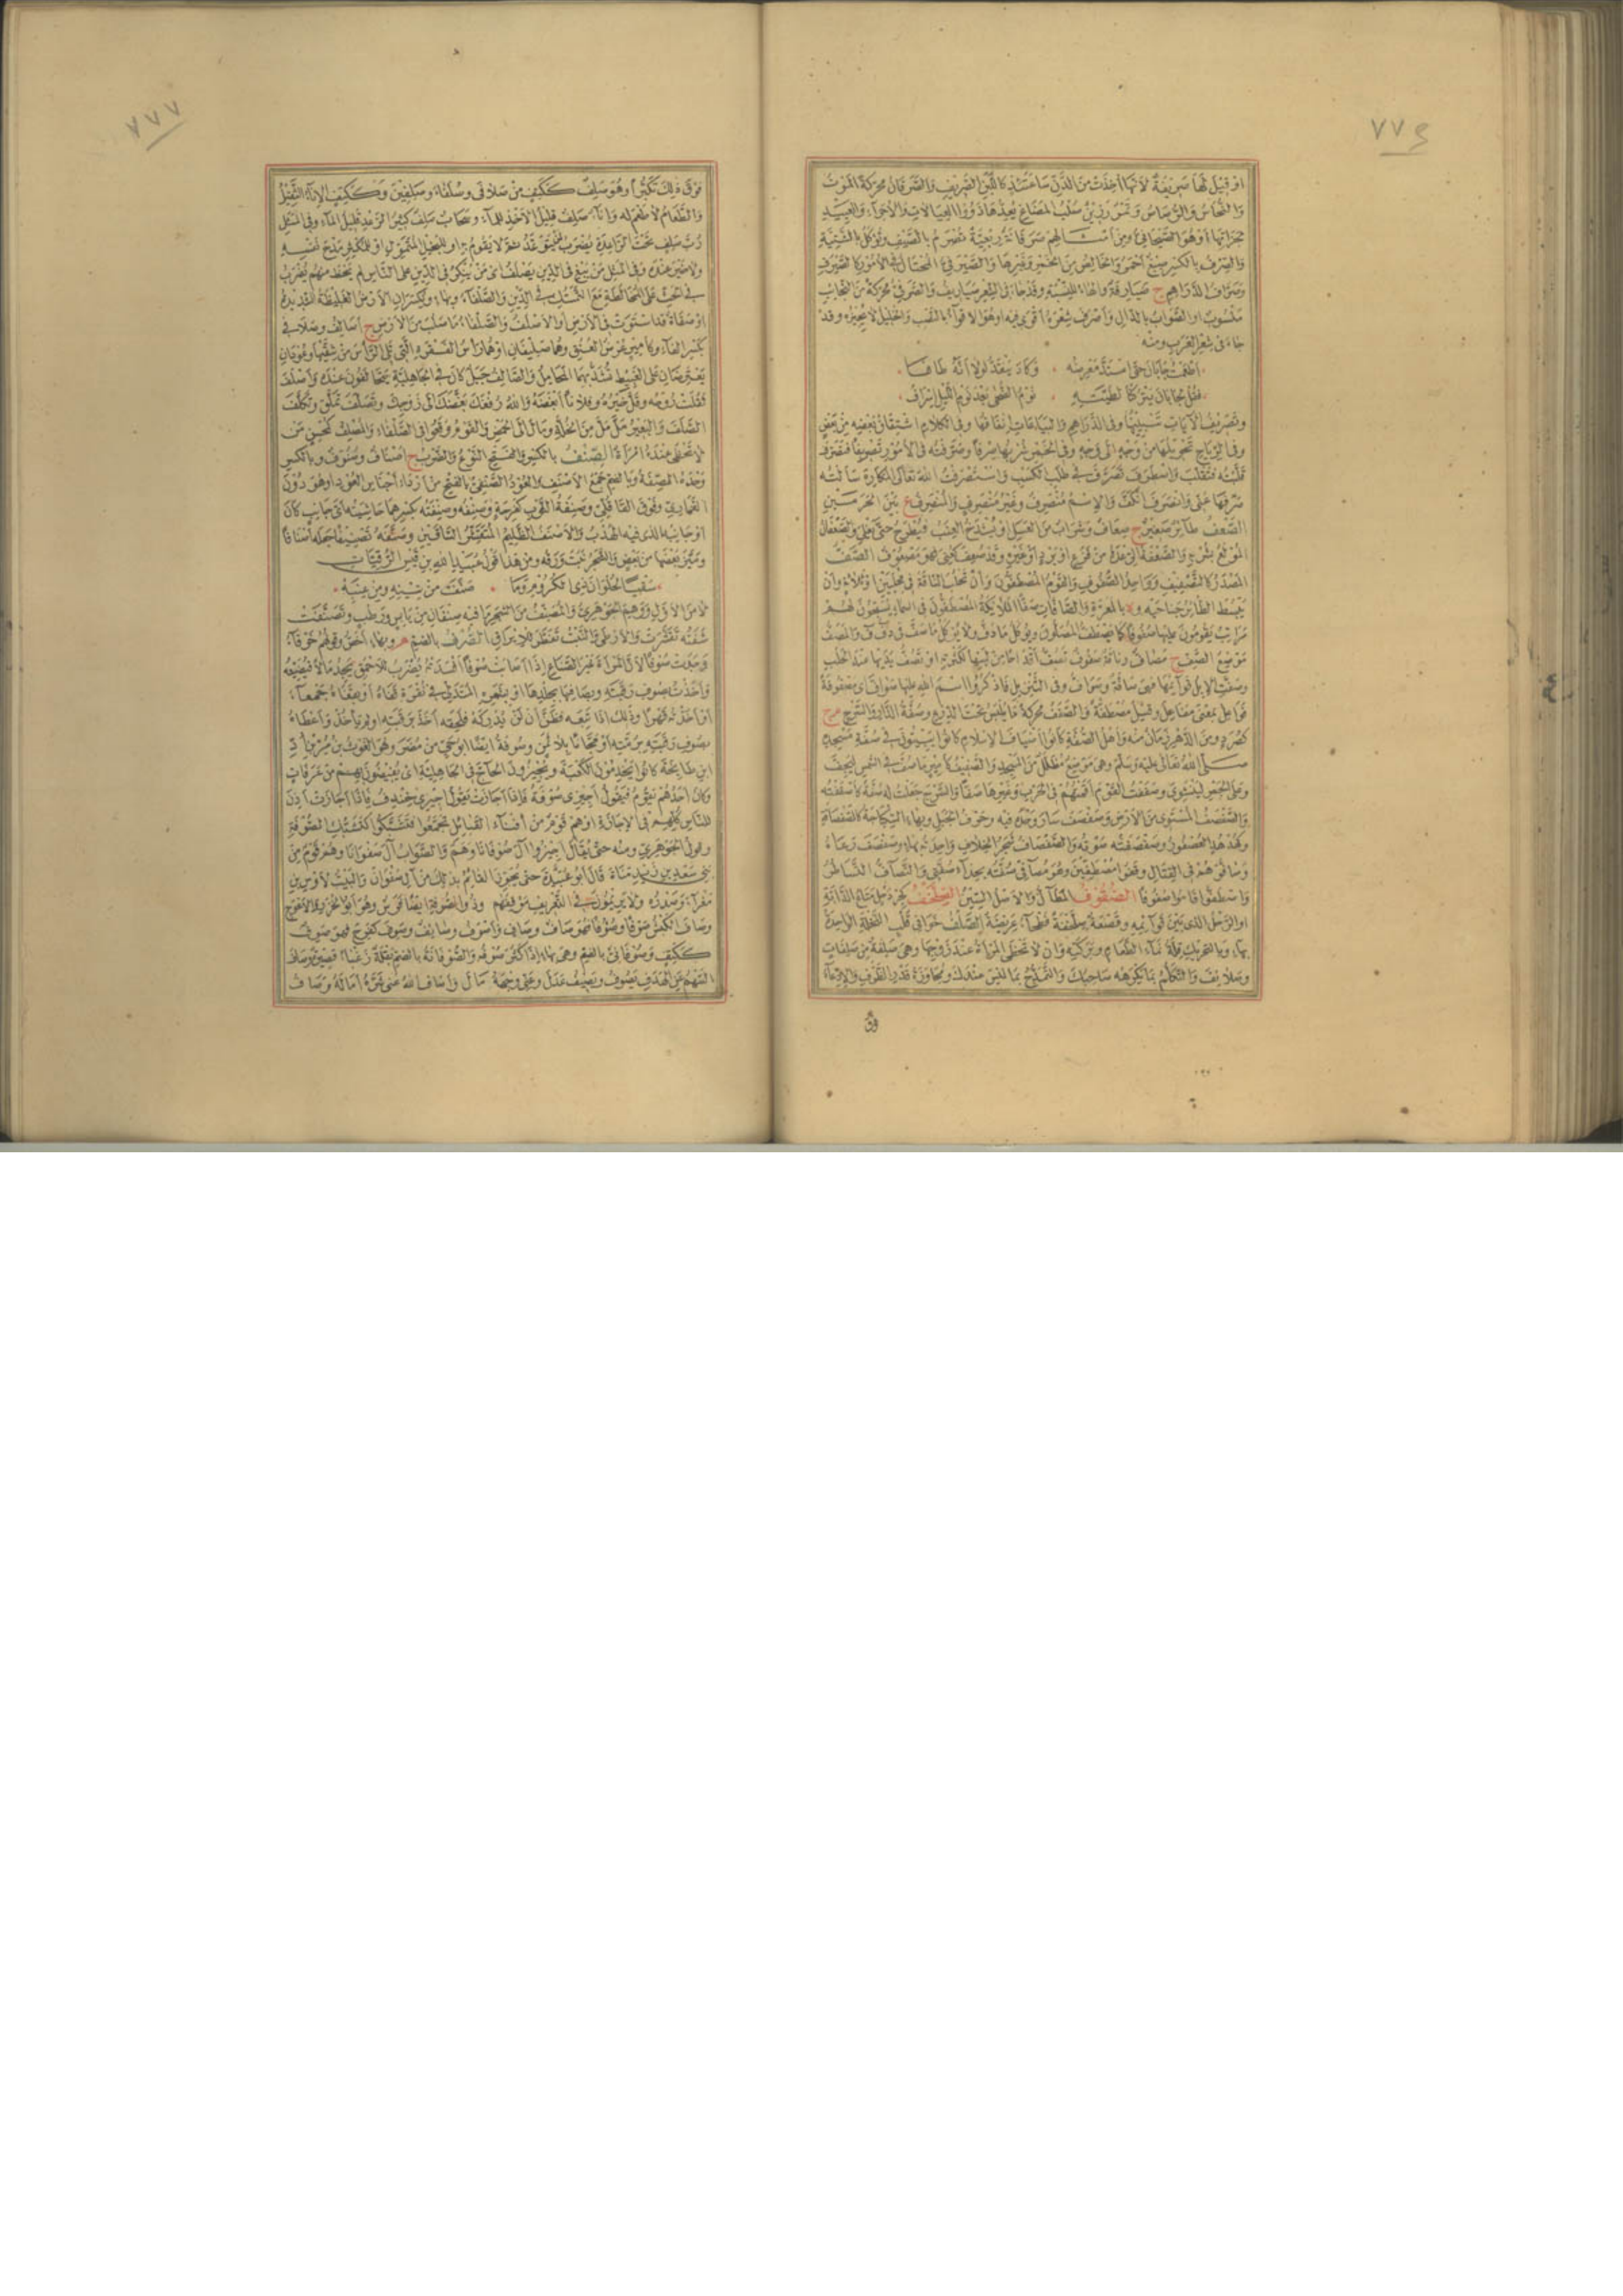 ٧٧٦
او قيل لها صريفة لأنها أخذت من الدن ساعتئذ كاللبن الصريف والصرفان محركة الموت
والنحاس والرصاص وتمر رزين صلب المضاغ يعدها ذوو العيالات والأجراء والعبيد
لجزائها أو هو الصيحاني ومن أمثالهم صرفانة ربعية تصرم بالصيف وتؤكل بالشتية
والصرف بالكسر صبغ أحمر والخالص من الخمر وغيرها والصيرفي المحتال في الأمور كالصيرف
وصراف الدراهم ج صيارفة والهاء للنسبة وقد جاء في الشعر صياريف والصرفي محركة من النجائب
منسوب أو الصواب بالدال وأصرف شعره أقوى فيه أو هو الإقواء بالنصب والخليل لا يجيزه وقد
جاء في شعر العرب ومنه
أطعمت جابان حتى استد مغرضه وكاد ينقد لولا أنه طافا
فقل لجابان يتركنا لطيته نوم الضحى بعد نوم الليل إسراف
وتصريف الآيات تبيينها وفي الدراهم والبياعات إنفاقها وفي الكلام اشتقاق بعضه من بعض
وفي الرياح تحويلها من وجه إلى وجه وفي الخمر شربها صرفا وصرفته في الأمور تصريفا فتصرف
قلبته فتقلب واصطرف تصرف في طلب الكسب واستصرفت الله تعالى المكاره سألته
صرفها عني وانصرف انكف والاسم منصرف وغير منصرف والمنصرف ع بين الحرمين
الصعف طائر صغير ج صعاف وشراب من العسل أو يشدخ العنب فيطرح حتى يغلي والصعفان
المولع بشربه والصعفة الرعدة من فزع أو برد أو غيره وقد صعف كعني فهو مصعوف الصف
المصدر كالتصفيف وواحد الصفوف والقوم المصطفون وأن تحلب الناقة في محلبين أو ثلاثة وأن
يبسط الطائر جناحيه و ة بالمعرة والصافات صفا الملائكة المصطفون في السماء يسبحون لهم
مراتب يقومون عليها صفوفا كما يصطف المصلون ويؤكل ما دف ولا يؤكل ما صف في د ف ف والمصف
موضع الصف ج مصاف وناقة صفوف تصف أقداحا من لبنها لكثرته أو تصف يديها عند الحلب
وصفت الإبل قوائمها فهي صافة وصواف وفي التنزيل فاذكروا اسم الله عليها صواف أي مصفوفة
فواعل بمعنى مفاعل وقيل مصطفة والصفف محركة ما يلبس تحت الدرع وصفة الدار والسرج م ج
كصرد ومن الدهر زمان منه وأهل الصفة كانوا أضياف الإسلام كانوا يبيتون في صفة مسجده
صلى الله تعالى عليه وسلم وهي موضع مظلل من المسجد والصفيف كأمير ما صف في الشمس ليجف
وعلى الجمر لينشوي وصففت القوم أقمتهم في الحرب وغيرها صفا والسرج جعلت له صفة كأصففته
والصفصف المستوي من الأرض وصفصف سار وحده فيه وحرف الجبل وبهاء السكباجة كالصفصافة
وكهدهد العصفور وصفصفته صوته والصفصاف شجر الخلاف واحدته بهاء وصفصف رعاه
وصافوهم في القتال وقفوا مصطفين وهو مصافي صفته بحذاء صفتي والتصاف التساطر
واصطفوا قاموا صفوفا الصقوف المظال والأصل السين الصلخف كجردحل متاع الدابة
أو الرجل الذي بين قوائمه وقصعة صلخفة فطحاء عريضة الصلف خوافي قلب النخلة الواحدة
بهاء وبالتحريك قلة نماء الطعام وبركته وأن لا تحظى المرأة عند زوجها وهي صلفة من صلفات
وصلائف والتكلم بما يكرهه صاحبك والتمدح بما ليس عندك ومجاوزة قدر الظرف والادعاء
فوق
٧٧٧
فوق ذلك تكبرا وهو صلف ككتف من صلافى وصلفاء وصلفين وككتف الإناء الثقيل
والطعام لا طعم له وإناء صلف قليل الأخذ للماء وسحاب صلف كثير الرعد قليل الماء وفي المثل
رب صلف تحت الراعدة يضرب لمن يتوعد ثم لا يقوم به أو للبخيل المتمول أو للمكثر مدح نفسه
ولا خير عنده وفي المثل من يبغ في الدين يصلف أي من ينكر في الدين على الناس لم يحظ منهم يضرب
في الحث على المخالطة مع التمسك في الدين والصلفاء وبهاء ويكسران الأرض الغليظة الشديدة
أو صفاة قد استوت في الأرض أو الأصلف والصلفاء ما صلب من الأرض ج أصالف وصلافي
بكسر الفاء وكأمير عرض العنق وهما صليفان أو هما رأس الفقرة التي تلي الرأس من شقيها وعودان
يعترضان على الغبيط تشد بهما المحامل والصالف جبل كان في الجاهلية يتحالفون عنده وأصلف
ثقلت روحه وقل خيره وفلانا أبغضه والله رفغك بغضك إلى زوجك وتصلف تملق وتكلف
الصلف والبعير مل من الخلة ومال إلى الحمض والقوم وقعوا في الصلفاء والمصلف كمحسن من
لا تحظى عنده امرأة الصنف بالكسر والفتح النوع والضرب ج أصناف وصنوف وبالكسر
وحده الصفة وبالضم جمع الأصنف والعود الصنفي بالفتح من أردإ أجناس العود أو هو دون
القماري وفوق القاقلي وصنفة الثوب كفرحة وصنفه وصنفته بكسرهما حاشيته أي جانب كان
أو جانبه الذي فيه الهدب والأصنف الظليم المتقشر الساقين وصنفه تصنيفا جعله أصنافا
وميز بعضها من بعض والشجر نبت ورقه ومن هذا قول عبيد الله بن قيس الرقيات
سقيا لحلوان ذي الكروم وما صنف من تينه ومن عنبه
لا من الأول ووهم الجوهري والمصنف من الشجر ما فيه صنفان من يابس ورطب وتصنفت
شفته تقشرت والأرطى والنبت تفطر للإيراق الصوف بالضم م وبهاء أخص وقولهم خرقاء
وجدت صوفا لأن المرأة غير الصناع إذا أصابت صوفا أفسدته يضرب للأحمق يجد مالا فيضيعه
وأخذت بصوف رقبته وبصافها بجلدها أو بشعره المتدلي في نقرة قفاه أو بقفاه جمعاء
أو أخذته قهرا وذلك إذا تبعه وظن أن لن يدركه فلحقه أخذ برقبته أو لم يأخذ وأعطاه
بصوف رقبته برمته أو مجانا بلا ثمن وصوفة أيضا أبو حي من مضر وهو الغوث بن مر بن أد
ابن طابخة كانوا يخدمون الكعبة ويجيزون الحاج في الجاهلية أي يفيضون بهم من عرفات
وكان أحدهم يقوم فيقول أجيزي صوفة فإذا أجازت يقول أجيزي خندف فإذا أجازت أذن
للناس كلهم في الإجازة أو هم قوم من أفناء القبائل تجمعوا فتشبكوا كتشبك الصوفة
وقول الجوهري ومنه حتى يقال أجيزوا آل صوفانا وهم والصواب آل صفوانا وهم قوم من
بني سعد بن زيد مناة قال أبو عبيدة حتى يجوز القائم بذلك من آل صفوان والبيت لأوس بن
مغراء وصدره ولا يريمون في التعريف موقفهم وذو الصوفة أيضا فرس وهو أبو الخزز والأعوج
وصاف الكبش صوفا وصووفا فهو صاف وصاف وأصوف وصائف وصوف كفرح فهو صوف
ككتف وصوفاني بالضم وهي بهاء إذا كثر صوفه والصوفانة بالضم بقلة زغباء قصيرة وصاف
السهم عن الهدف يصوف ويصيف عدل وعني وجهه مال وأصاف الله عني شره أماله وصاف